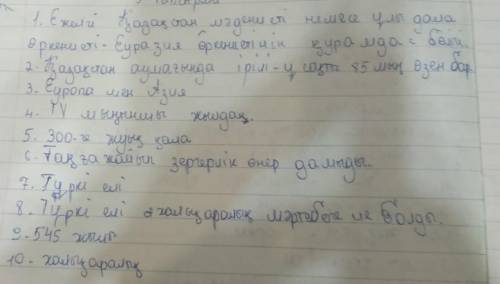 1. Ежелгі Қазақстан мәдениеті немесе ұлы дала
өркениеті - Еуразия өркениетінің құрамдас бөлігі
2. Қазақстан аумағында ірілі-ұсақты 85 мың өзен бар
3. Еуропа мен Азия
4. IV мыңыншы жылдақ.
5. 300-ге жуық қала
6. Таңғажайып зергерлік өнер дамыды.
7. Түркі елі
8. Түркі елі халықаралық мәртебеге ие болды.
9. 545 жылы
10. халықаралық